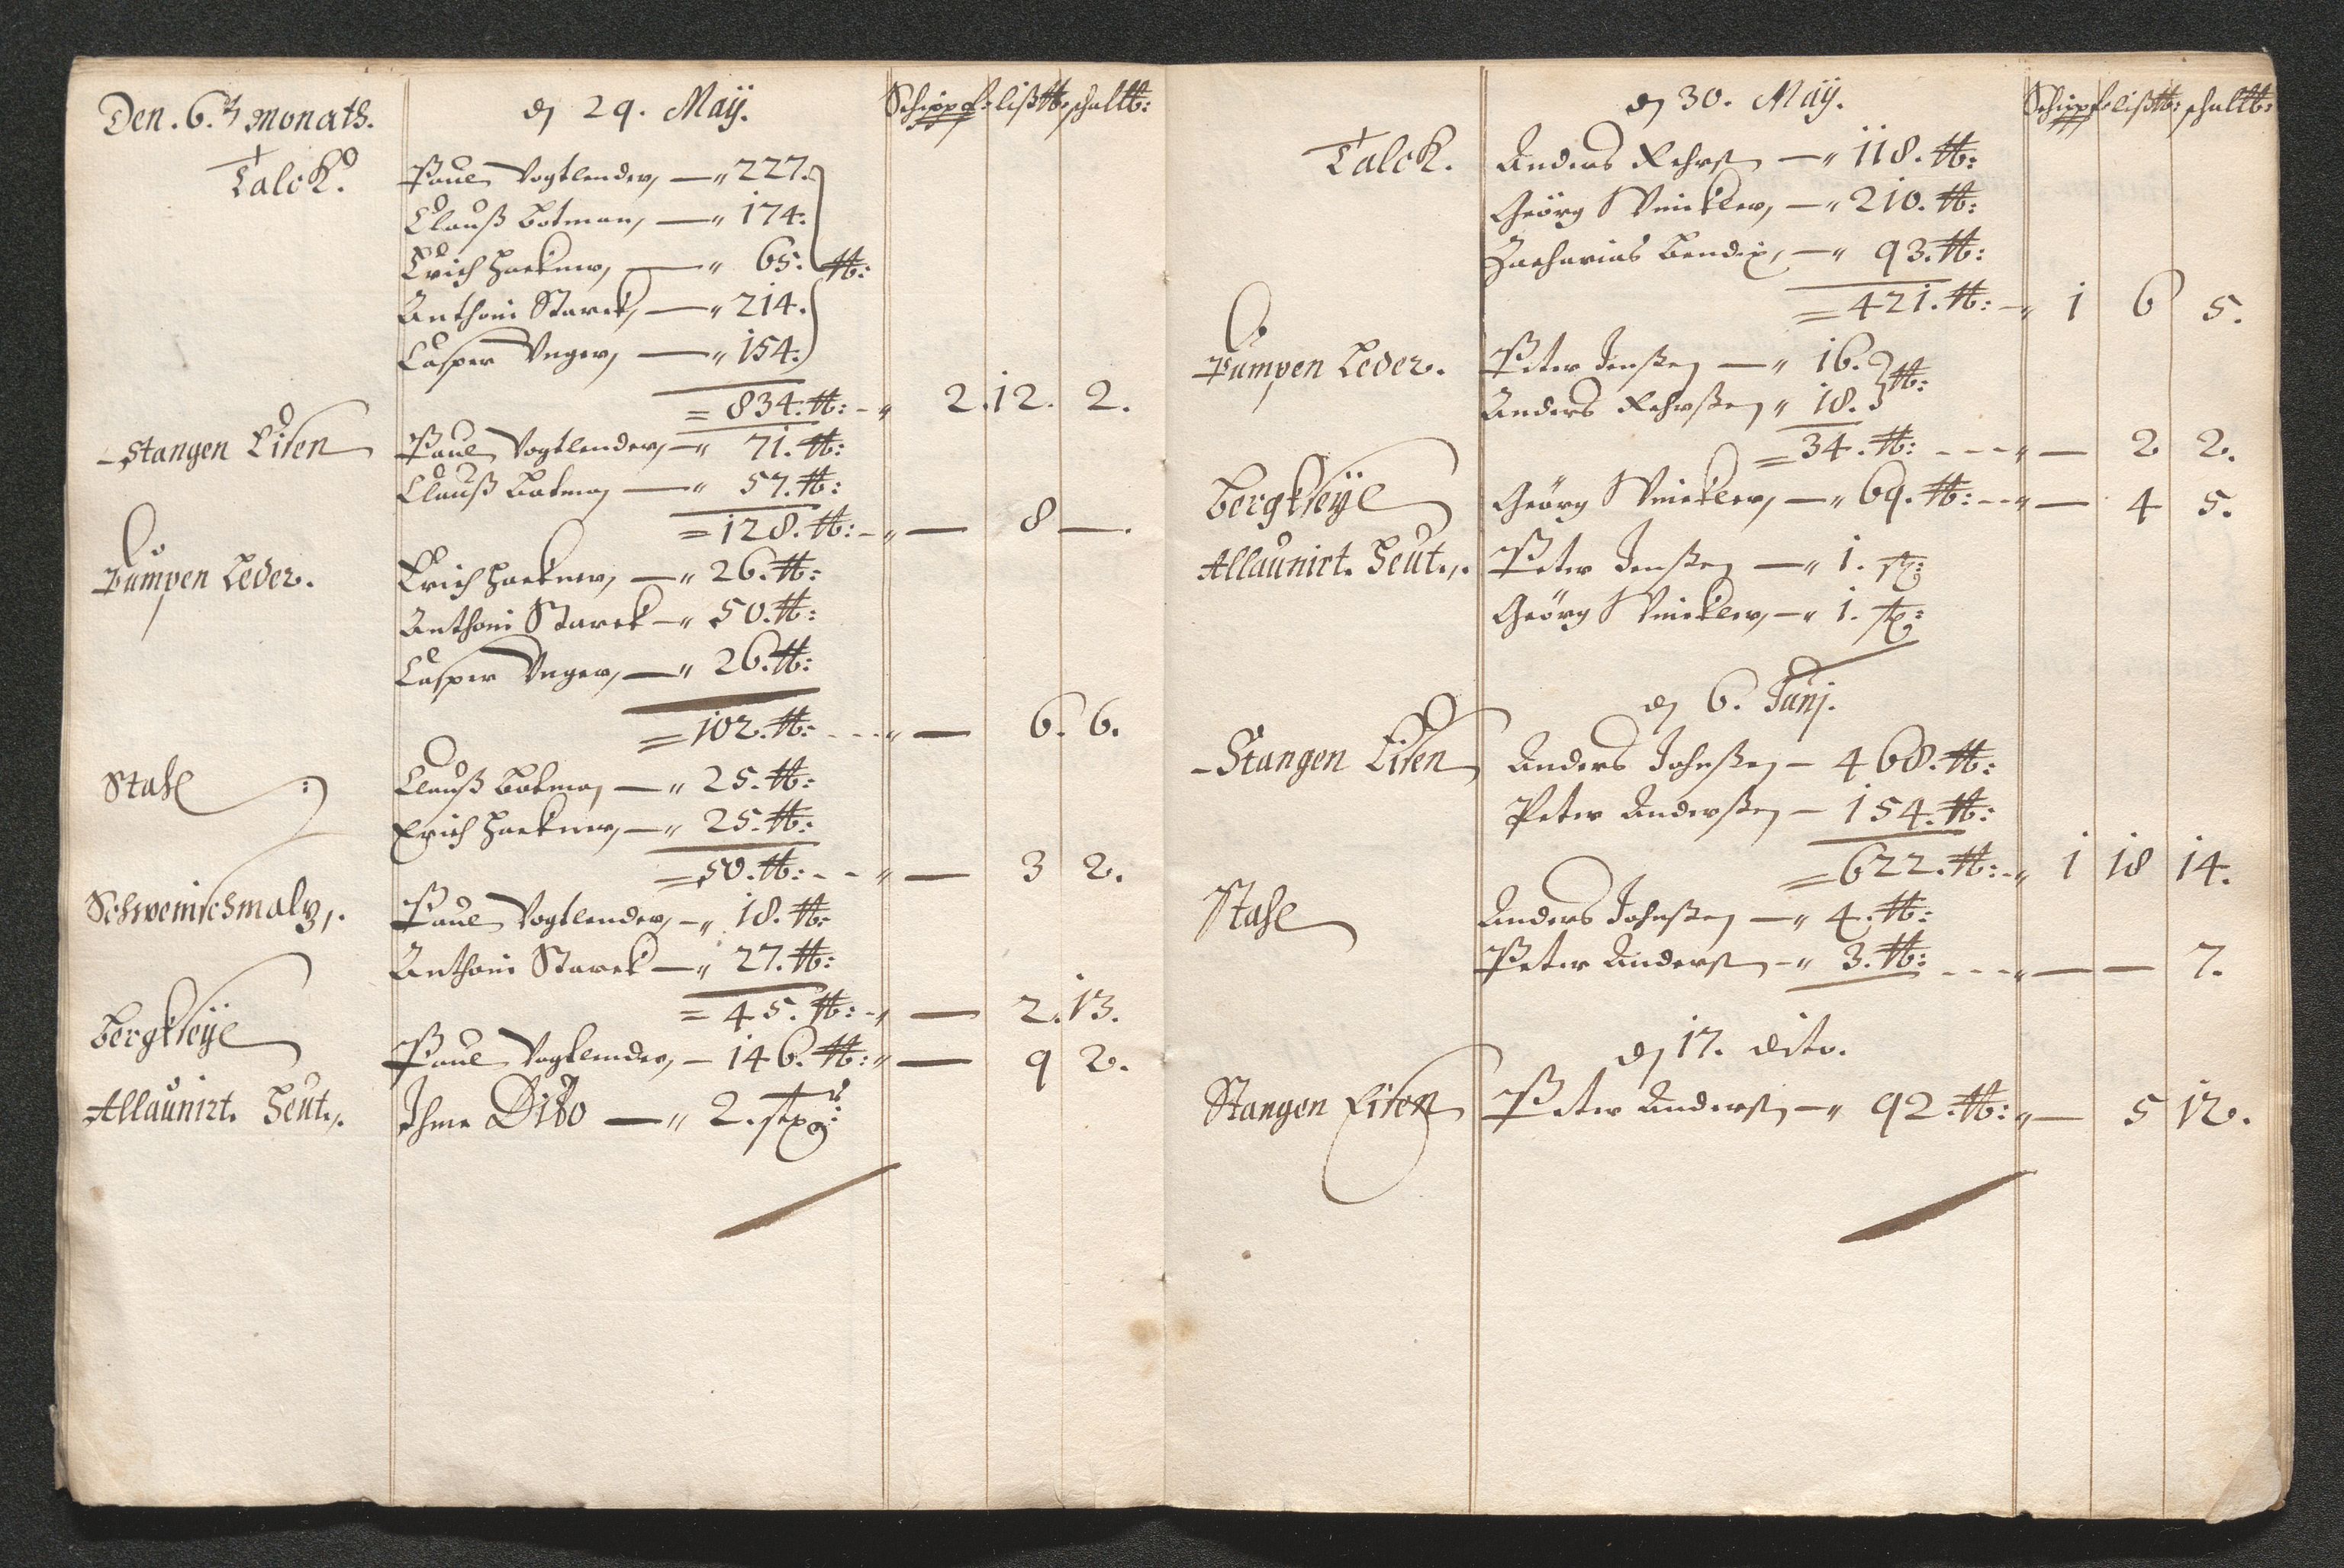 Den. 6.t Monats. den 29. Maÿ. Schippf: liß℔: schal℔:
Talck. Paul Vogtlender, — 227.
Clauß Botman, — 174.
Erich Hackner, — 65. ℔:
Anthoni Starck, — 214.
Casper Unger, — 154.
= 834. ℔: — 2. 12. 2.
Stangen Eisen Paul Vogtlender, — 71. ℔:
Clauß Botman — 57. ℔:
= 128. ℔: — — 8 —.
Pumpen Leder. Erich Hackner, — 26. ℔:
Anthoni Starck — 50. ℔:
Casper Unger, — 26. ℔:
= 102. ℔: — — 6. 6.
Stahl Clauß Botman — 25. ℔:
Erich Hackner, — 25. ℔:
= 50. ℔: — — 3 2.
Schweinschmalz. Paul Vogtlender, — 18. ℔:
Anthoni Starck — 27. ℔:
= 45. ℔: — — 2. 13.
Bergkseÿe Paul Vogtlender, — 146. ℔: — 9 2.
Allaunirt. Heut. Ihme Dito — 2.
den 30. Maÿ. Schippf: liß℔: schal℔:
Talck. Anders — 118. ℔:
Geörg Winckler, — 210. ℔:
Zacharias Bendix, — 93. ℔:
= 421. ℔: — 1 6 5.
Pumpen Leder. Peter Jenßen — 16.
Anders 18. ℔:
= 34. ℔: — — 2 2.
Bergkseÿe Geörg Winckler, — 69. ℔: — — 4 5.
Allaunirt. Heut. Peter Jenßen — 1.
Geörg Winckler, — 1.
den 6. Junj.
Stangen Eisen Anders Johnßen — 468. ℔:
Peter Anderßen — 154. ℔:
= 622. ℔: — 1 18 14.
Stahl Anders Johnßen — 4. ℔:
Peter Anderßen — 3. ℔: — — — 7.
den 17. dito.
Stangen Eisen Peter Anderßen — 92. ℔: — 5 12.